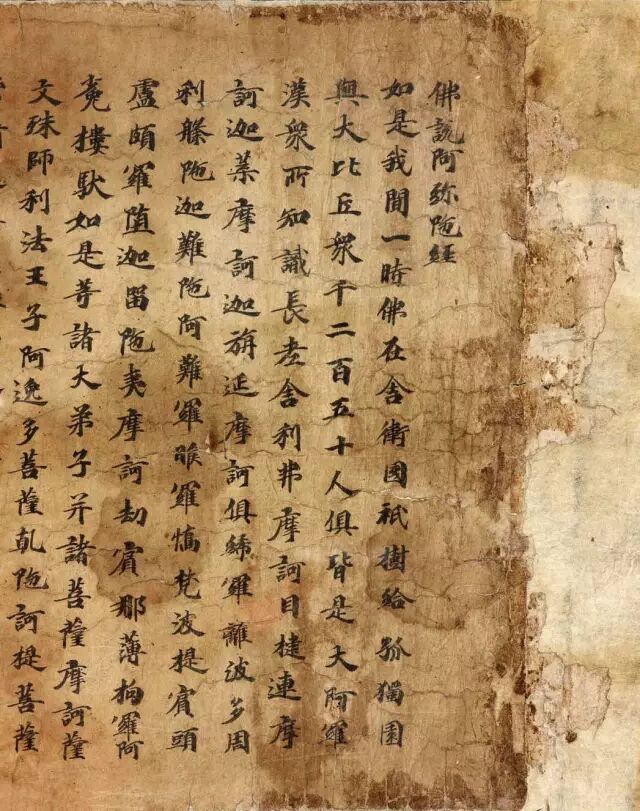 佛說阿弥陁經
如是我聞一時佛在舍衛國祇樹給孤獨園
與大比丘衆千二百五十人俱皆是大阿羅
漢衆所知識長老舍利弗摩訶目揵連摩
訶迦葉摩訶迦旃延摩訶俱絺羅離波多周
利膝陁迦難陁阿難羅睺羅憍梵波提賓頭
盧頗羅堕迦留陁夷摩訶劫賓那薄拘羅阿
㝹樓馱如是等諸大弟子并諸菩薩摩訶薩
文殊師利法王子阿逸多菩薩乹陁訶提菩薩